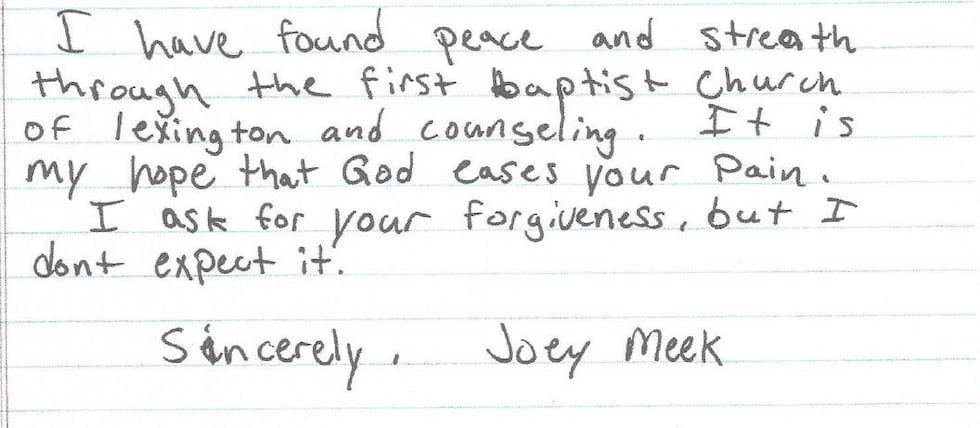 I have found peace and streath
through the first baptist church
of lexington and counseling. It is
my hope that God eases your Pain.
I ask for your forgiveness, but I
dont expect it.
Sincerely, Joey Meek